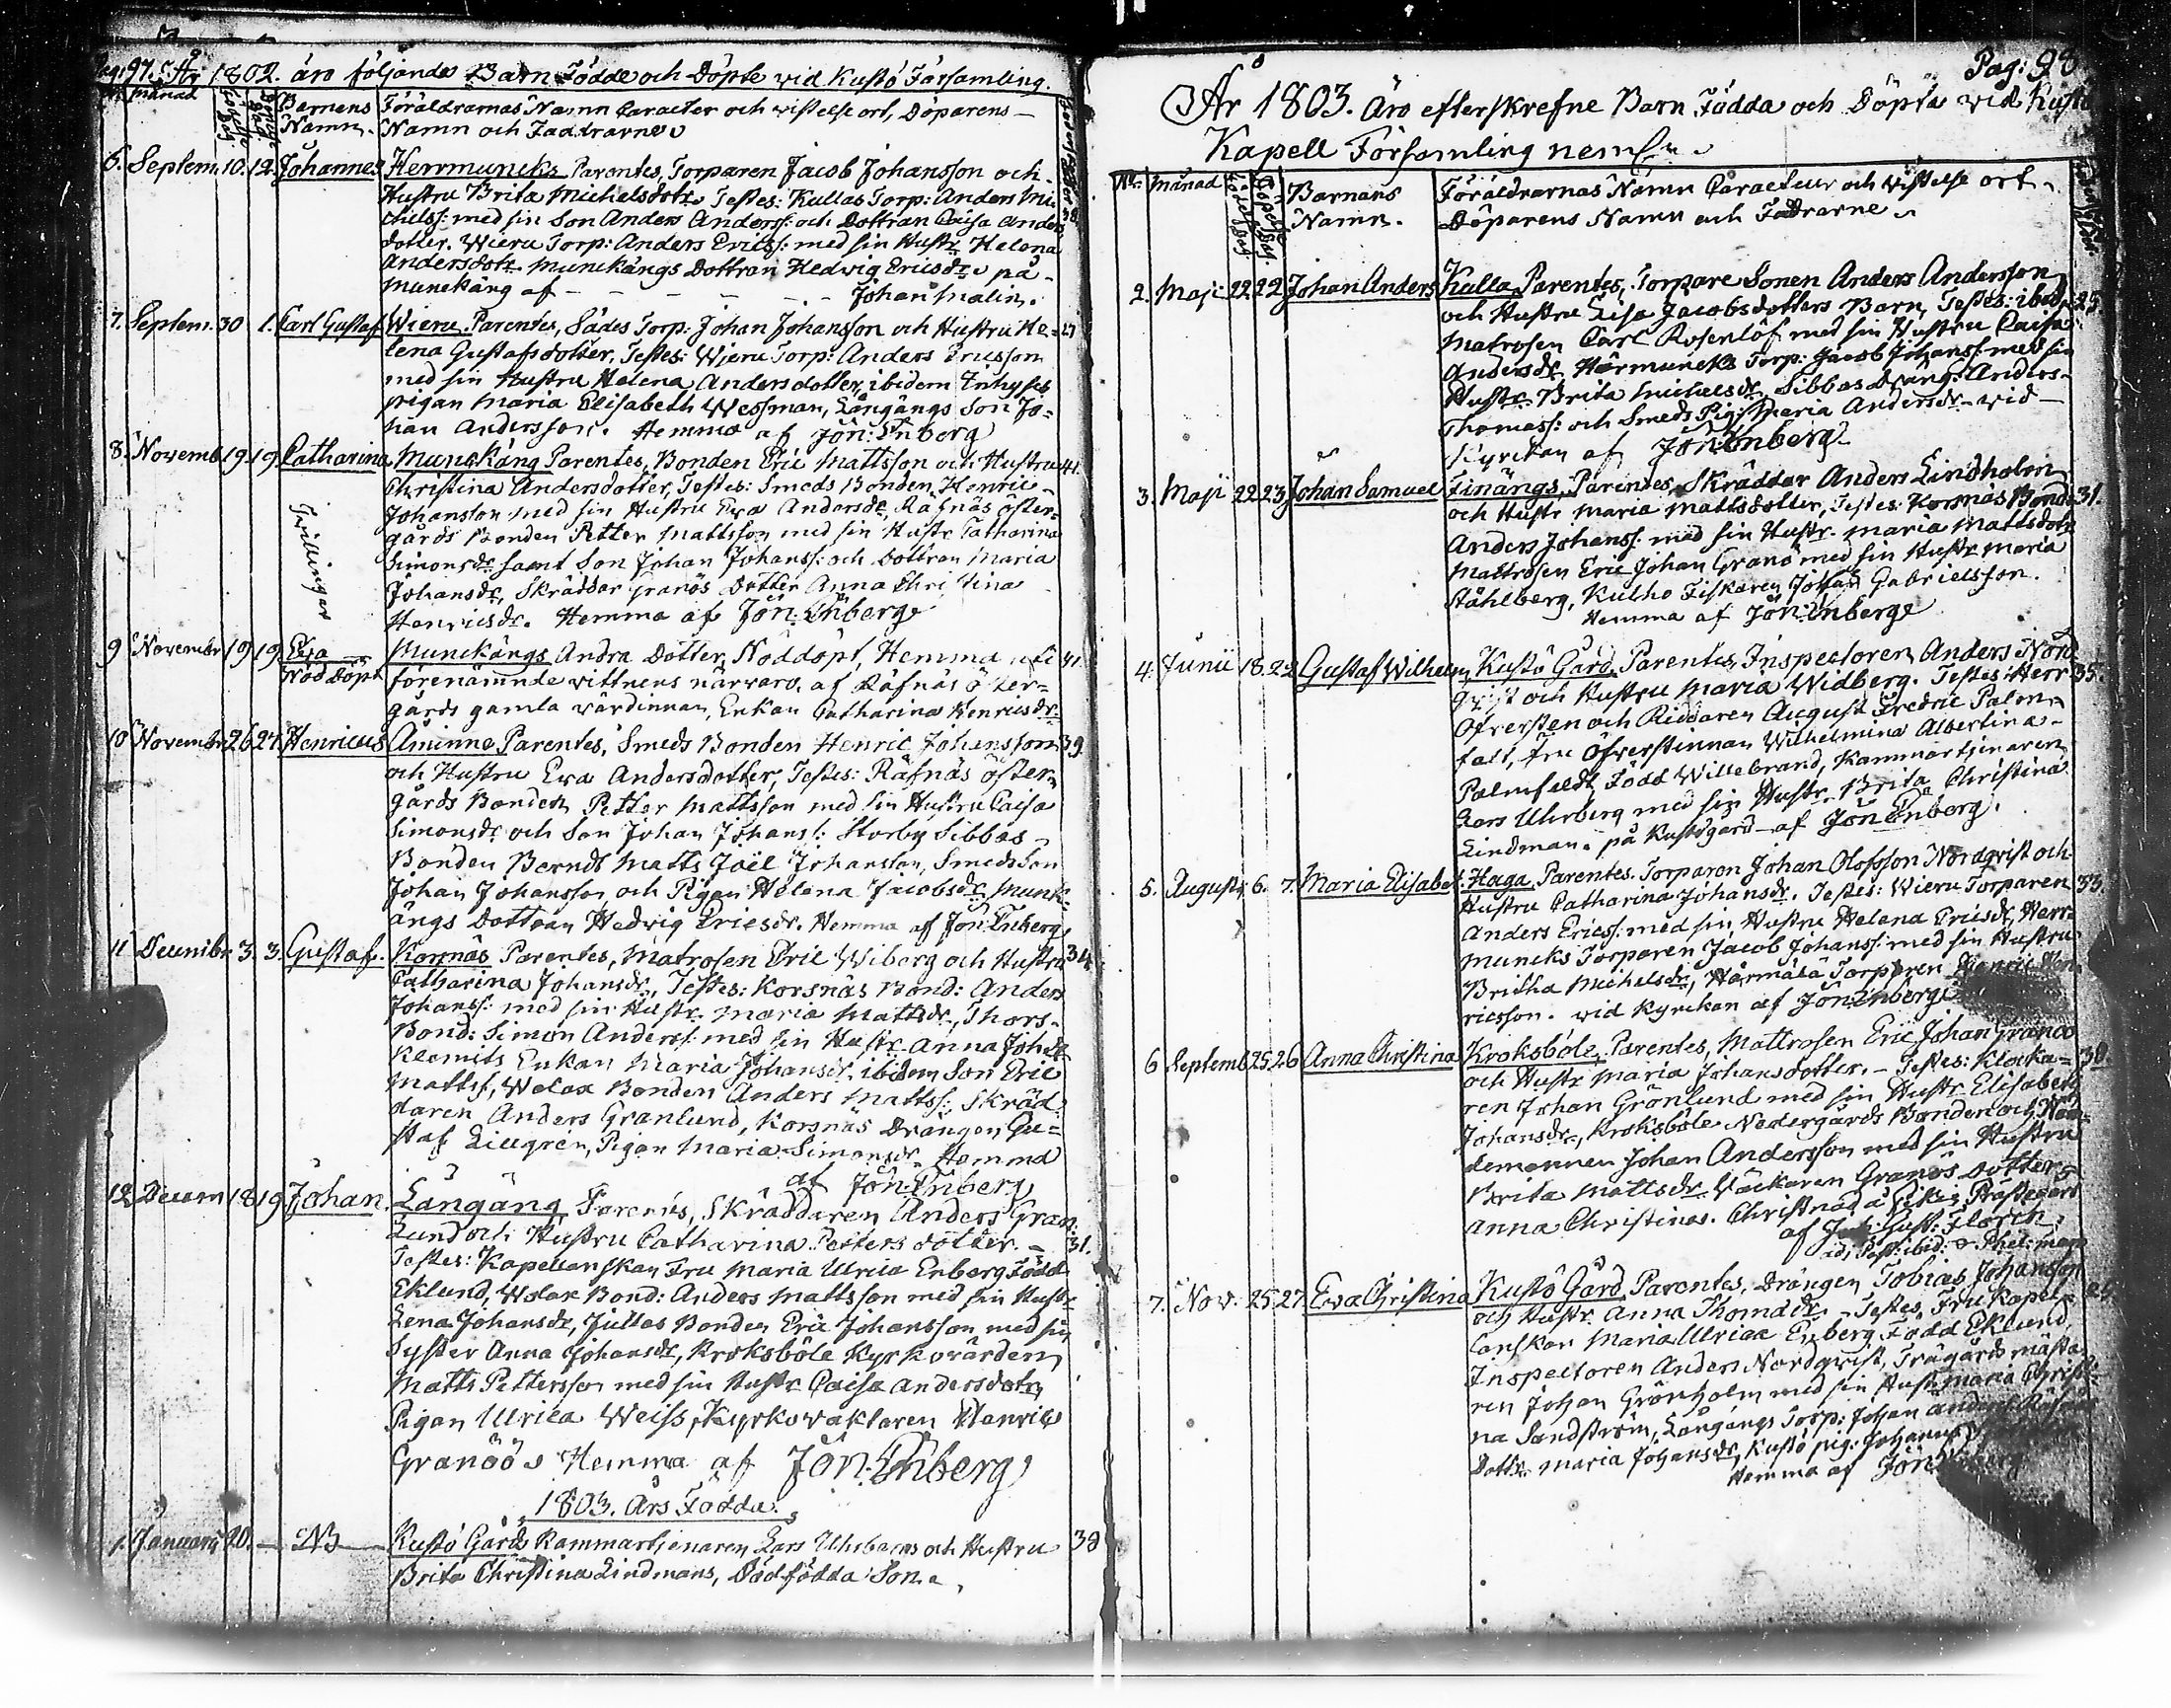 Pag: 97. År 1802. äro följande Barn Födde och Döpte vid Kustö Församling.
månad
Barnens Namn.
Föräldrarnas Namn Caracter och vistelse ort, Döparens
Namn och Faddrarne
6. Septem. 10. 12. Johannes Herrmuncks Parentes, Torparen Jacob Johansson och
Hustru Brita Michelsdotr. Testes: Kullas Torp: Anders Mi- 38
chelss: med sin Son Anders Anderss: och Dottran Caisa Anders
dotter. Wieru Torp: Anders Ericss: med sin Hustr. Helena
Andersdotr. Munckängs Dottran Hedvig Ericsdr. på
Munckäng af - - - - - - Johan Malin.
7. Septem. 30 1. Carl Gustaf Wieru Parentes, Sädes Torp: Johan Johansson och Hustru He= 27
lena Gustafsdotter, Testes: Wieru Torp: Anders Ericsson
med sin Hustru Helena Andersdotter, ibidem Inhyses
pigan Maria Elisabeth Wessman, Långängs Son Jo=
han Andersson. Hemma af Jön: Enberg
8. Novemb. 19. 19. Catharina Munckäng Parentes, Bonden Eric Mattsson och Hustru 41.
Christina Andersdotter, Testes: Smeds Bonden Henric
Johansson med sin Hustru Eva Andersdr. Räfnäs öster=
gårds Bonden Petter Mattsson med sin Hustr. Catharina
Simonsdr. samt Son Johan Johanss: och Dottran Maria
Johansdr, Skräddar Granös Dotter Anna Christina
Henricsdr. Hemma af Jön: Enberg
Tvillingar
9 Novembr 19 19. Eva Munckängs Andra Dotter, Nöddöpt, Hemma uti 41.
Nöd Döpt förenämnde vittnens närvaro, af Räfnäs öster=
gårds gamla värdinnan, Enkan Catharina Henricsdr.
10 Novembr 26 27. Henricus Åminne Parentes, Smeds Bonden Henric Johansson 39.
och Hustru Eva Andersdotter, Testes: Räfnäs öster=
gårds Bonden Petter Mattsson med sin Hustru Caisa
Simonsdr. och Son Johan Johans: Storby Sibbas
Bonden Berndt Matts Joël Johansson, Smeds Son
Johan Johansson och Pigan Helena Jacobsdr. Munk=
ängs Dottran Hedvig Ericsdr. Hemma af Jön: Enberg
11 Decembr. 3. 3. Gustaf. Kornäs Parentes, Matrosen Eric Wiberg och Hustru 34
Catharina Johansdr., Testes: Korsnäs Bond: Anders
Johanss: med sin Hustr. Maria Mattsdr., Thors-
Bond: Simon Anderss: med sin Hustr. Anna Johdr
Klemits Enkan Maria Johansdr. ibidem Son Eric
Mattss, Wolax Bonden Anders Mattss: Skräd=
daren Anders Granlund, Korsnäs Drängen Gu=
staf Lillgren, Pigan Maria Simonsdr. Hemma
af Jön: Enberg
12 Decem 18 19. Johan. Långäng Parentes, Skräddaren Anders Gran=
lund och Hustru Catharina Petters dotter. - 31.
Testes: Kapellanskan Fru Maria Ulrica Enberg Född
Eklund, Wolax Bond: Anders Mattsson med sin Hustr
Lena Johansdr, Jullas Bonden Eric Johansson med sin
Syster Anna Johansdr, Kroksböle Kyrkovärden
Matts Pettersson med sin Hustr. Caisa Andersdotr,
Pigan Ulrica Weiss, Kyrkovaktaren Henric
Granöö. Hemma af Jön: Enberg
1803. Års Födde.
1. Januarii 20. - NB Kustö Gårds Kammartjenaren Lars Uhrbergs och Hustru 38
Brita Christina Lindmans, Dödfödda Son.
Pag: 98
År 1803. Äro efterskrefne Barn Födda och Döpta vid Kustö
Kapell Församling neml.
No. månad Födelse Dag Döpelse Dag
Barnens Namn.
Föräldrarnas Namn Caracteur och vistelse ort.
Döparens Namn och Faddrarne
2. Maji 22 22 Johan Anders Kulla, Parentes, Torpare Sonen Anders Andersson
och Hustru Lisa Jacobsdotters Barn, Testes: ibid: 25.
Matrosen Carl Rosenlöf med sin Hustru Caisa
Andersdr. Härmuncks Torp: Jacob Johanss: med sin
Hustr. Brita Michelsdr, Sibbas Dräng: Anders
Thomass: och Smeds Pig: Maria Andersdr. vid
Kyrckan af Jön: Enberg
3. Maji 22 23 Johan Samuel Finängs, Parentes, Skräddar Anders Lindholm
och Hustr Maria Mattsdotter, Testes: Kornäs Bond: 31.
Anders Johanss: med sin Hustr. Maria Mattsdotr
Mattrosen Eric Johan Granö med sin Hustr Maria
Ståhlberg, Kulho Fiskaren Johan Gabrielsson.
Hemma af Jön: Enberg
4. Junii 18. 22 Gustaf Wilhelm Kustö Gård, Parentes, Inspectoren Anders Nord
qvist och Hustru Maria Widberg. Testes: Herr 35.
Öfversten och Riddaren August Fredric Palm=
falt, Fru Öfverstinnan Wilhelmina Albertina
Palmfeldt, Född Willebrand, Kammartjenaren
Lars Uhrberg med sin Hustr. Brita Christina
Lindman. på Kustögård af Jön: Enberg.
5. Augusti 6. 7. Maria Elisabet Haga, Parentes. Torparen Johan Olofsson Nordqvist och
Hustru Catharina Johansdr. Testes: Wieru Torparen 33.
Anders Ericss: med sin Hustru Helena Ericsdr, Herr=
muncks Torparen Jacob Johanss: med sin Hustru
Britha Michelsdr, Härmälä Torparen Henric Hen=
ricsson. vid kyrckan af Jön: Enberg
6 Septemb 25 26 Anna Christina Kroksböle, Parentes, Mattrosen Eric Johan Granöö
och Hustr Maria Johansdotter. - Testes: Klocka= 30.
ren Johan Grönlund med sin Hustr. Elisabeth
Johansdr., Kroksböle Nedergårds Bonden och Näm=
demannen Johan Andersson med sin Hustru
Brita Mattsdr. Väckaren Granös Dotter
Anna Christina. Christnad å Pikis Prästegård
af Joh: Gust: Florin
adj. Past: ibid: & Phil: mag
7. Nov. 25. 27 Eva Christina Kustö Gård, Parentes, Drängen Tobias Johansson
och Hustr. Anna Thomsdr. - Testes, Fru Kapel=
lanskan Maria Ulrica Enberg Född Eklund,
Inspectoren Anders Nordqvist, Trägårdsmästa=
ren Johan Grönholm med sin Hustr. Maria Christi=
na Sandström, Långängs Torp: Johan Anderss: Räfnäs
Dottr. Maria Johansdr, Kustö pig: Johanna
Hemma af Jön: Enberg